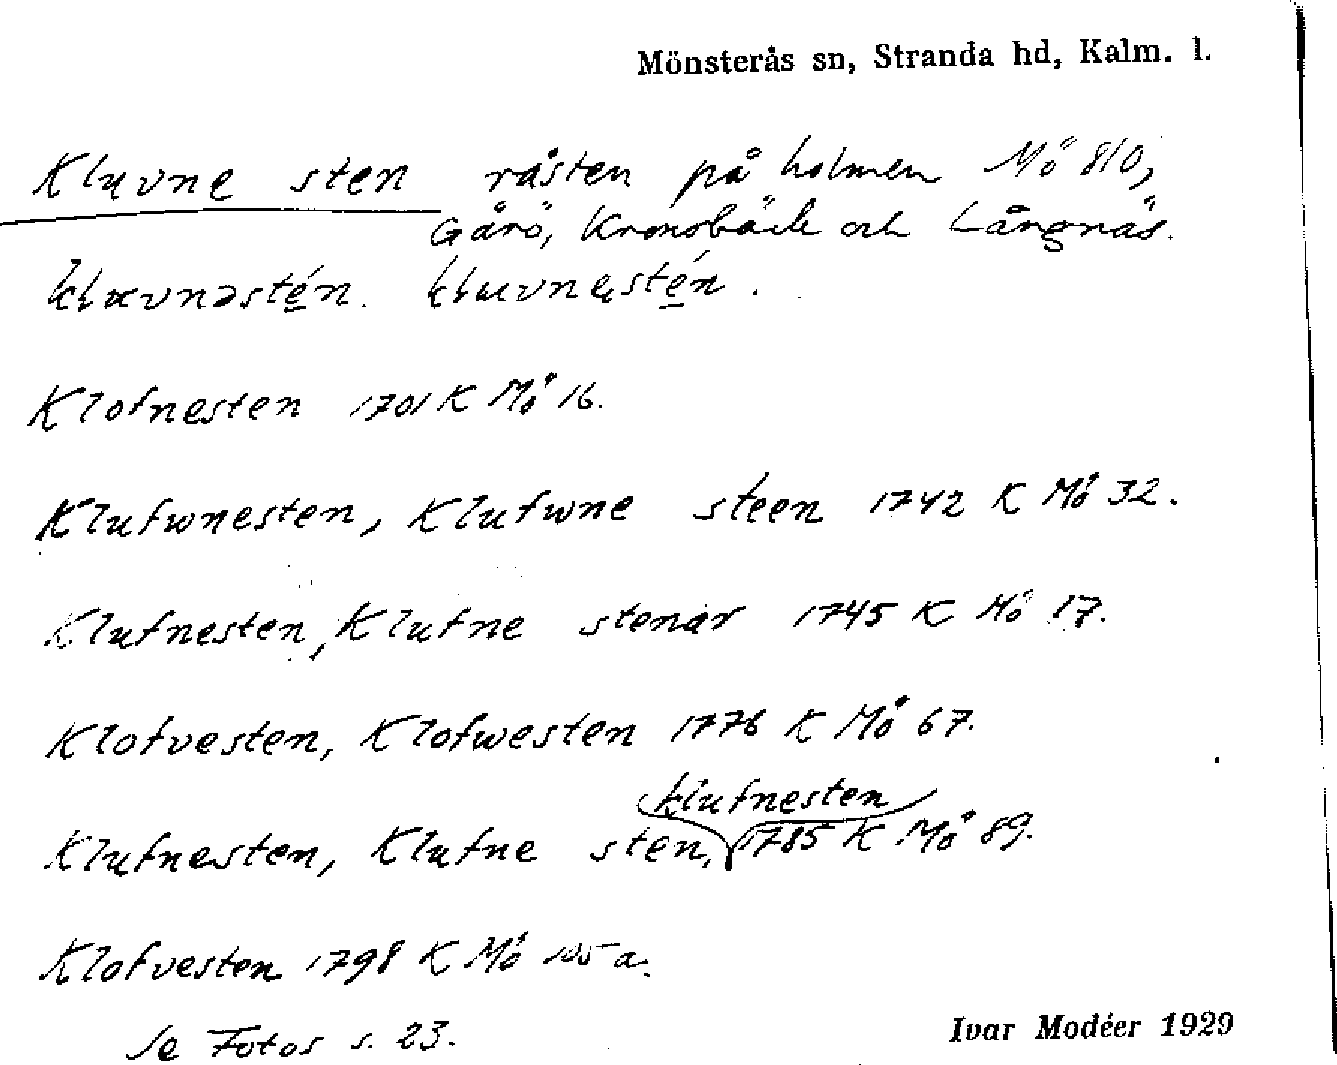 Mönsterås sn, Stranda hd, Kalm. l.
Kluvne sten råsten på holmen Mö 810,
Gårö, Kronobäck och Långnäs.
Klofnesten 1701 K Mö 16.
Klufwnesten, Klufwne steen 1742 K Mö 32.
Klufnesten, Klufne stenar 1745 K Mö 17.
Klofvesten, Klofwesten 1776 K Mö 67.
klufnesten
Klufnesten, Klufne sten, 1785 K Mö 89.
Klofvesten 1798 K Mö 105 a.
Se Fotos s. 23.
Ivar Modéer 1929